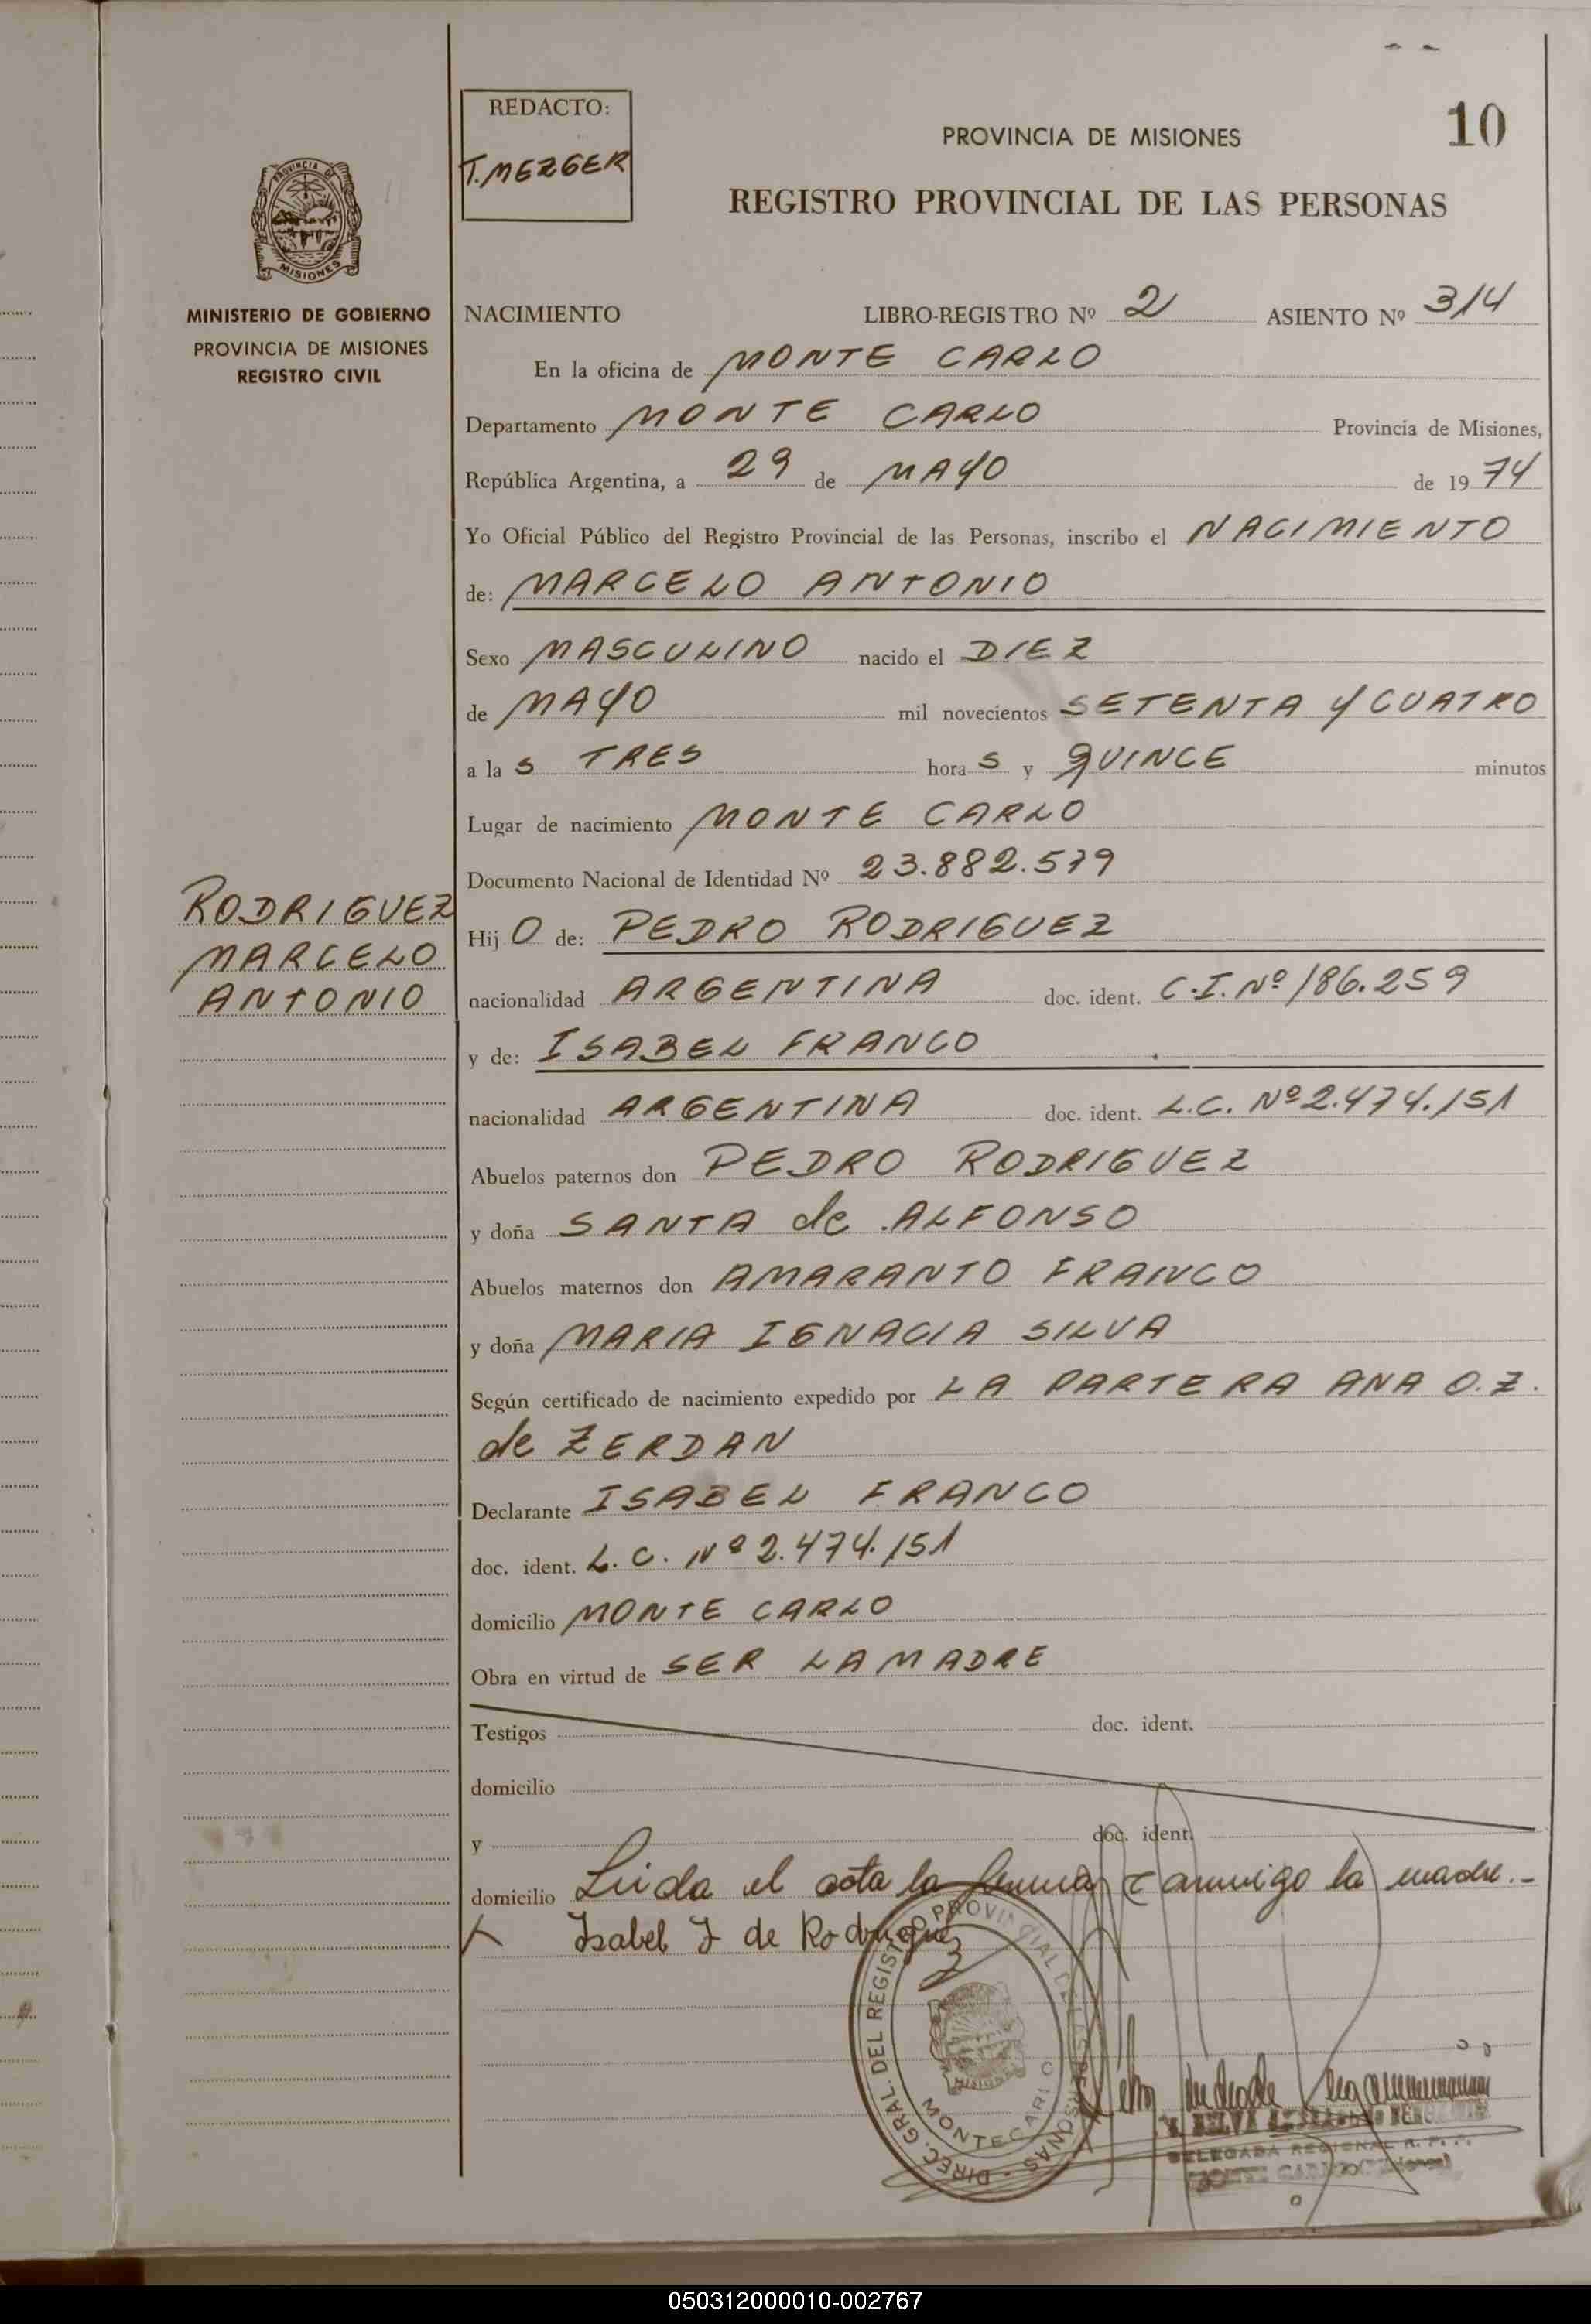 REDACTO:
T. MEZGER
10
PROVINCIA DE MISIONES
REGISTRO PROVINCIAL DE LAS PERSONAS
PROVINCIA DE
MISIONES
MINISTERIO DE GOBIERNO
PROVINCIA DE MISIONES
REGISTRO CIVIL
NACIMIENTO LIBRO-REGISTRO Nº 2 ASIENTO Nº 314
En la oficina de MONTE CARLO
Departamento MONTE CARLO Provincia de Misiones,
República Argentina, a 29 de MAYO de 1974
Yo Oficial Público del Registro Provincial de las Personas, inscribo el NACIMIENTO
de: MARCELO ANTONIO
Sexo MASCULINO nacido el DIEZ
de MAYO mil novecientos SETENTA Y CUATRO
a las TRES horas y QUINCE minutos
Lugar de nacimiento MONTE CARLO
Documento Nacional de Identidad Nº 23.882.579
RODRIGUEZ
MARCELO
ANTONIO
Hijo de: PEDRO RODRIGUEZ
nacionalidad ARGENTINA doc. ident. C.I. Nº 186.259
y de: ISABEL FRANCO
nacionalidad ARGENTINA doc. ident. L.C. Nº 2.474.151
Abuelos paternos don PEDRO RODRIGUEZ
y doña SANTA de ALFONSO
Abuelos maternos don AMARANTO FRANCO
y doña MARIA IGNACIA SILVA
Según certificado de nacimiento expedido por LA PARTERA ANA O. Z.
de ZERDAN
Declarante ISABEL FRANCO
doc. ident. L. C. Nº 2.474.151
domicilio MONTE CARLO
Obra en virtud de SER LA MADRE
Testigos doc. ident.
domicilio
y doc. ident.
domicilio Leida el acta la firma conmigo la madre.-
Isabel F de Rodriguez
DIREC. GRAL. DEL REGISTRO PROVINCIAL DE LAS PERSONAS
MISIONES
MONTECARLO
DELEGADA REGIONAL R. P. P.
MONTE CARLO (Misiones)
050312000010-002767